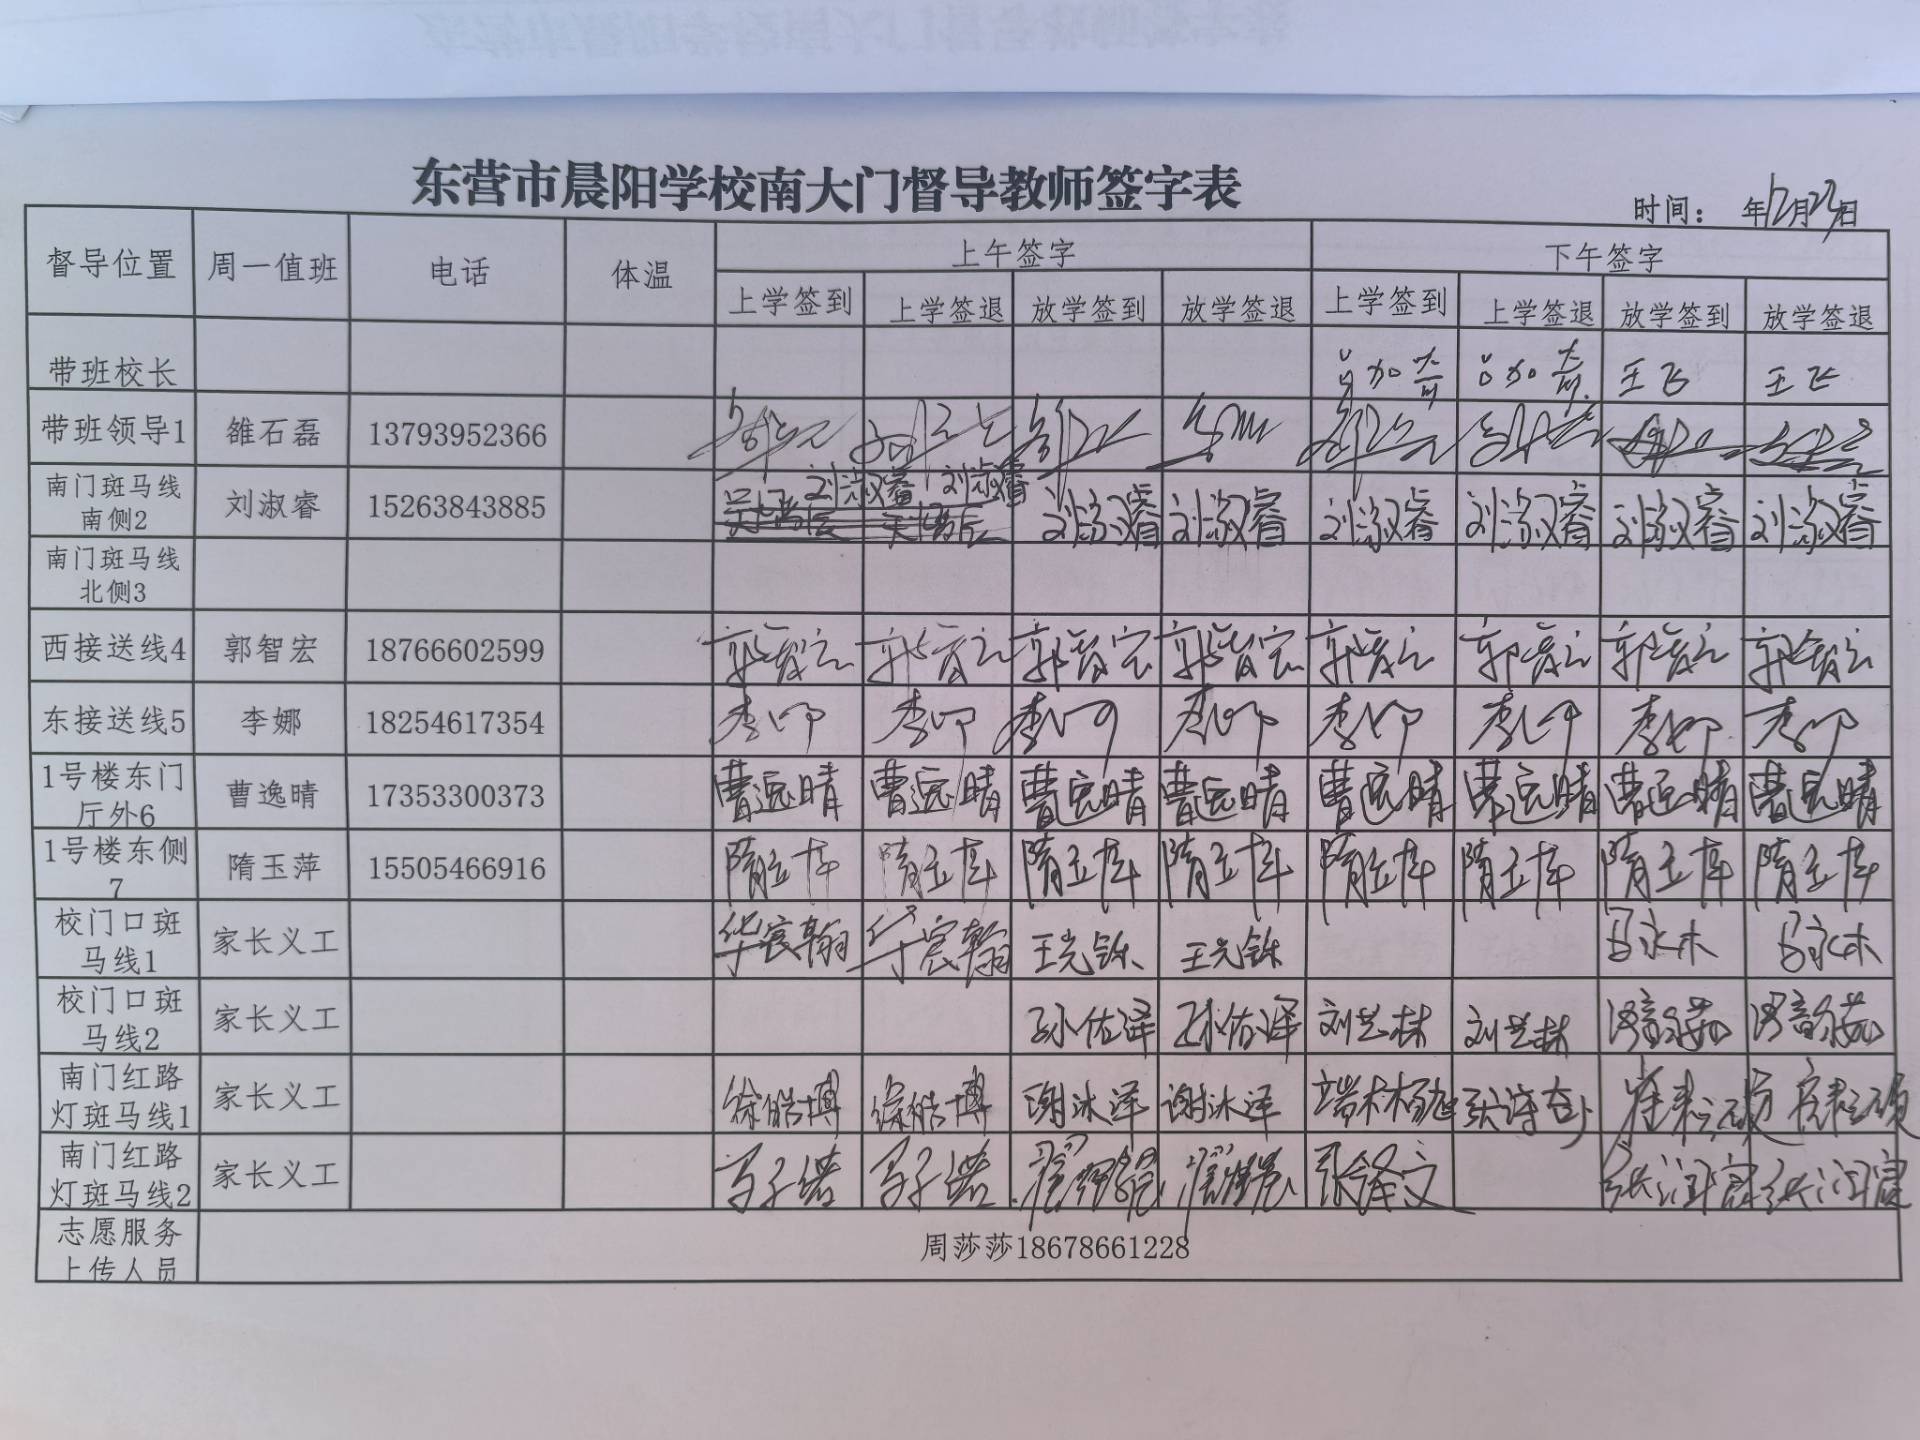 东营市晨阳学校南大门督导教师签字表
时间： 年12月23日
督导位置 周一值班 电话 体温 上午签字 下午签字
上学签到 上学签退 放学签到 放学签退 上学签到 上学签退 放学签到 放学签退
带班校长 王飞 王飞
带班领导1 雒石磊 13793952366
南门斑马线 刘淑睿 刘淑睿
南侧2 刘淑睿 15263843885 刘淑睿 刘淑睿 刘淑睿 刘淑睿 刘淑睿 刘淑睿
南门斑马线
北侧3
西接送线4 郭智宏 18766602599 郭智宏 郭智宏 郭智宏 郭智宏 郭智宏 郭智宏 郭智宏 郭智宏
东接送线5 李娜 18254617354 李娜 李娜 李娜 李娜 李娜 李娜 李娜 李娜
1号楼东门
厅外6 曹逸晴 17353300373 曹逸晴 曹逸晴 曹逸晴 曹逸晴 曹逸晴 曹逸晴 曹逸晴 曹逸晴
1号楼东侧
7 隋玉萍 15505466916 隋玉萍 隋玉萍 隋玉萍 隋玉萍 隋玉萍 隋玉萍 隋玉萍 隋玉萍
校门口斑
马线1 家长义工 华宸翰 华宸翰 王光铄 王光铄
校门口斑
马线2 家长义工 孙佑泽 孙佑泽 刘芸林 刘芸林
南门红路
灯斑马线1 家长义工 徐皓博 徐皓博 谢沐泽 谢沐泽
南门红路
灯斑马线2 家长义工 张铎文 张润宸 张润宸
志愿服务
上传人员 周莎莎18678661228